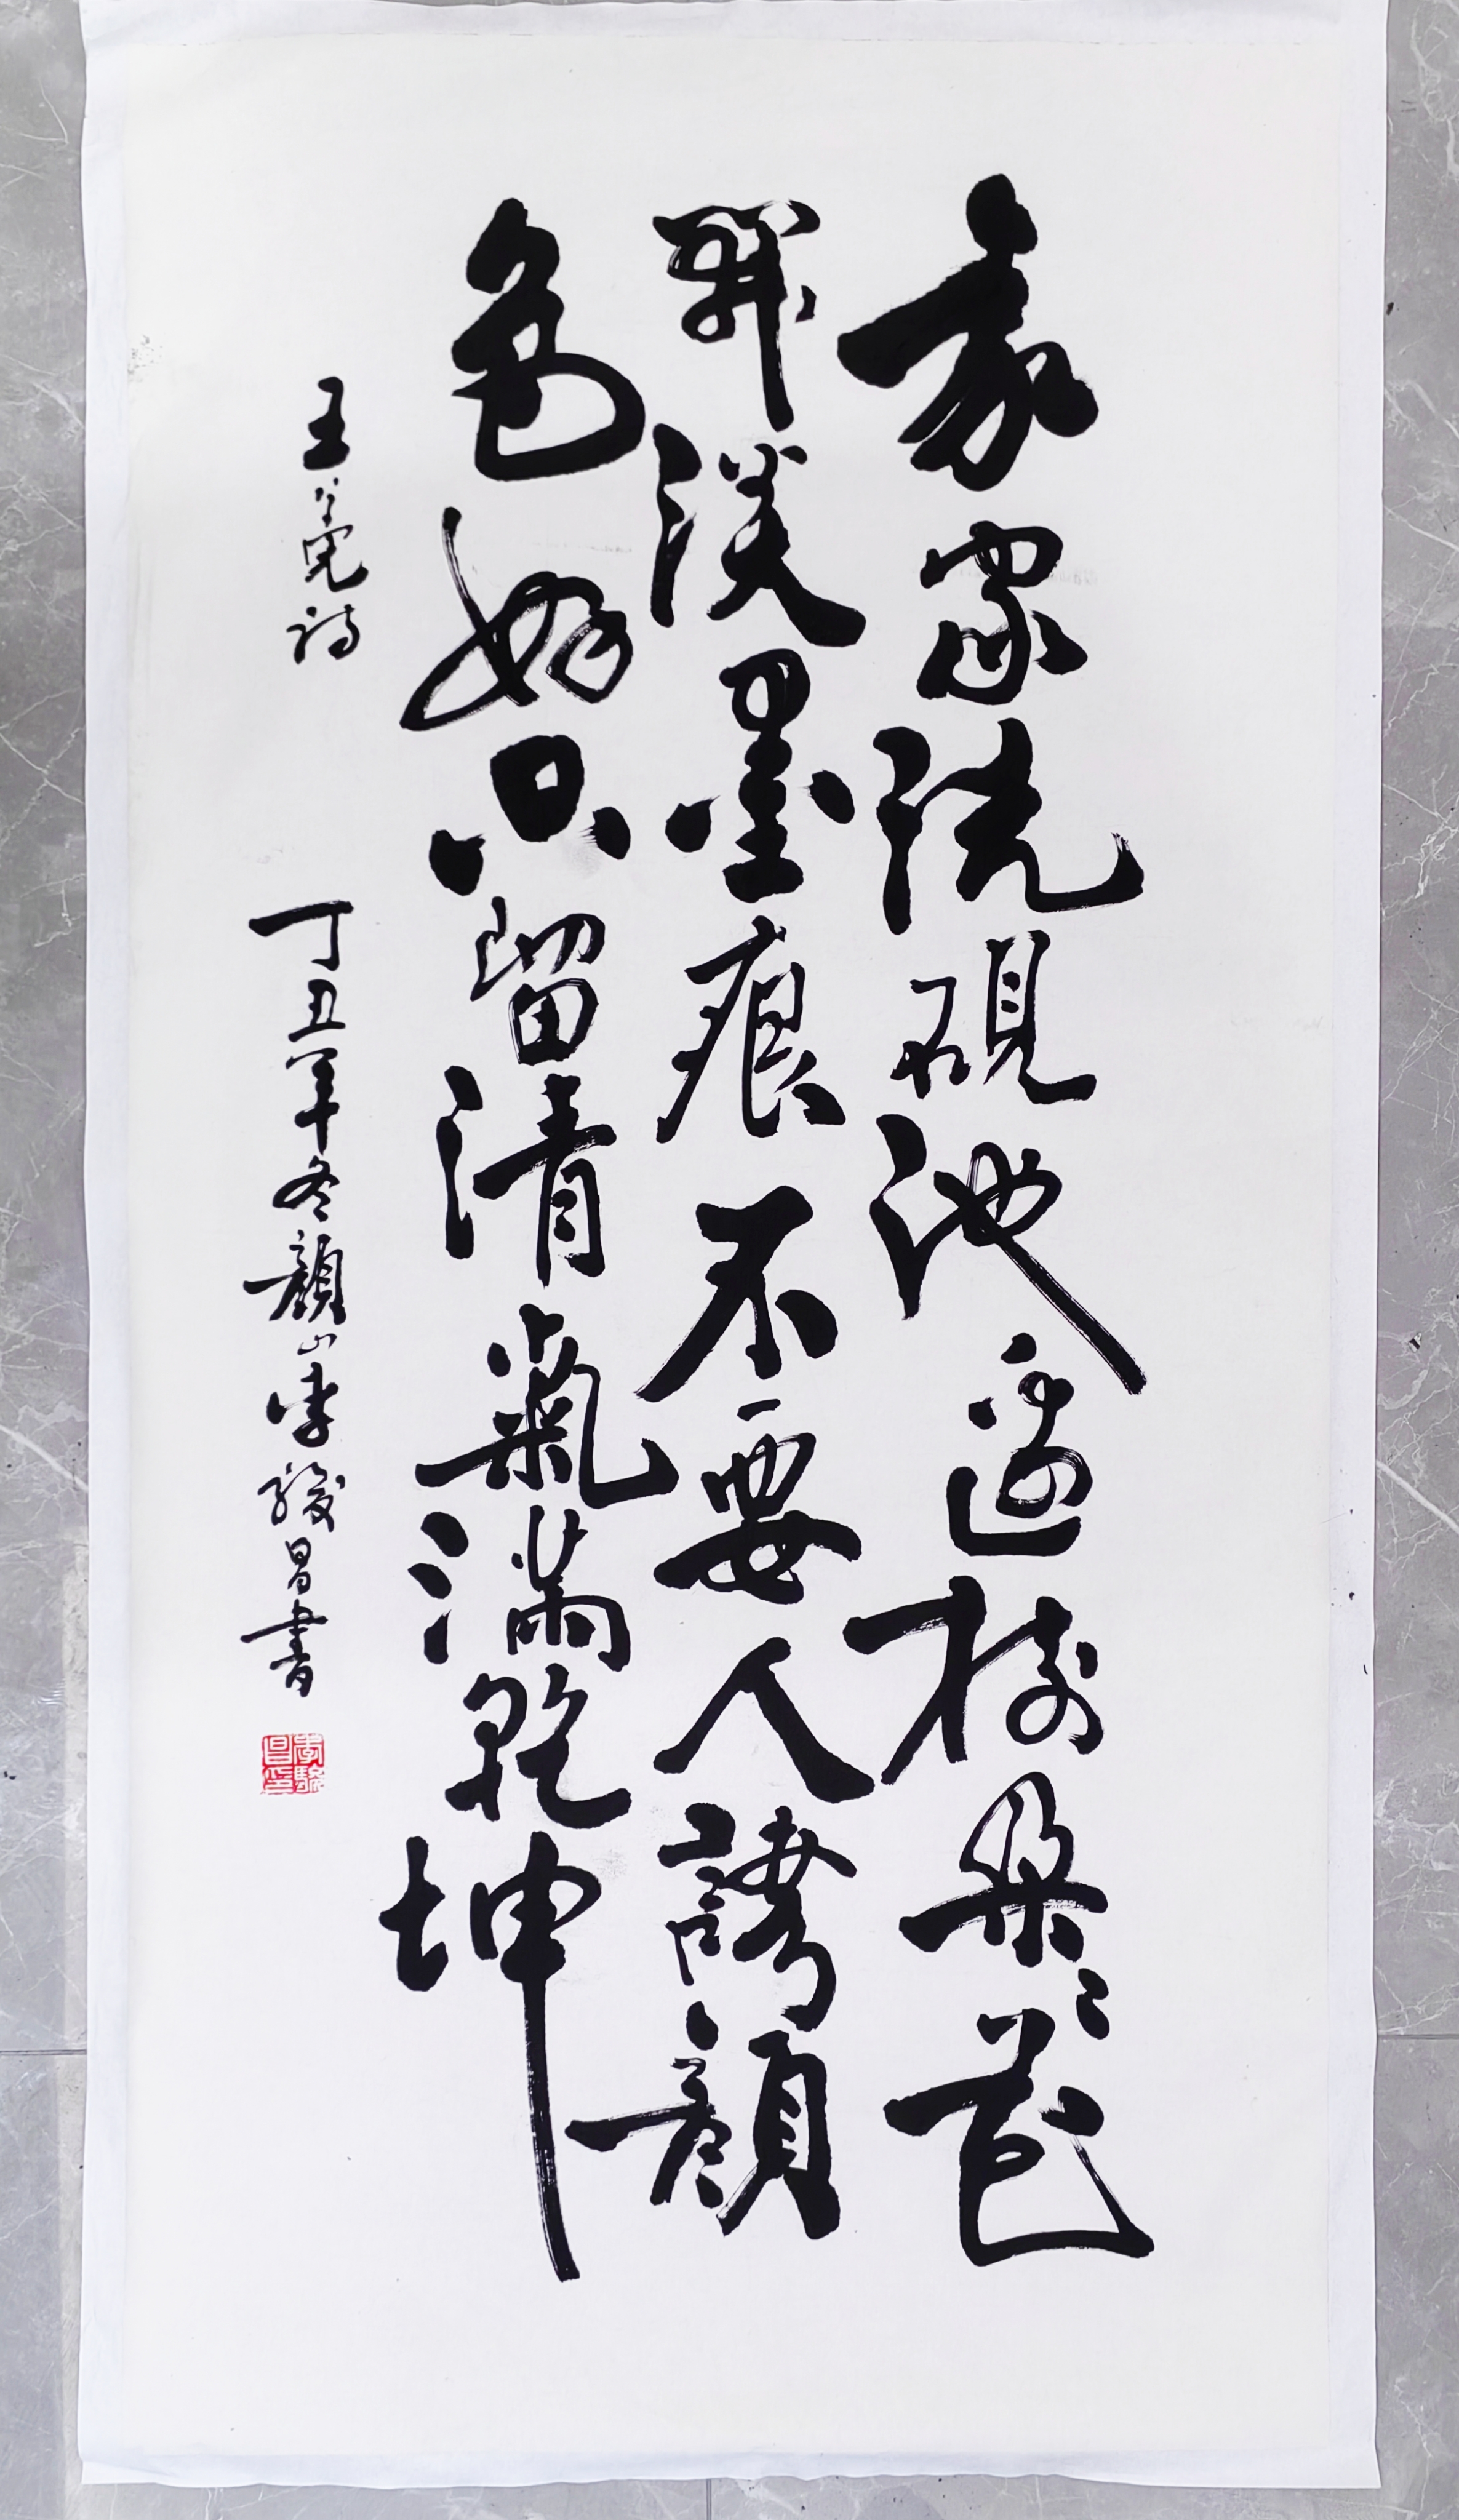 我家洗硯池邊樹朵〻花
開淡墨痕不要人誇顏
色好只留清氣滿乾坤
王冕詩 丁丑年冬顏山李駿昌書
李駿昌印